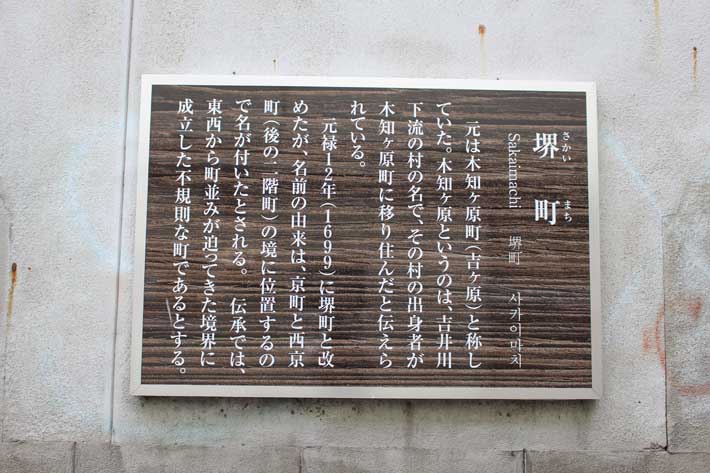 堺町
さかい まち
Sakaimachi 堺町 사카이마치
元は木知ヶ原町(吉ヶ原)と称し
ていた。木知ヶ原というのは、吉井川
下流の村の名で、その村の出身者が
木知ヶ原町に移り住んだと伝えら
れている。
元禄12年(1699)に堺町と改
めたが、名前の由来は、京町と西京
町(後の二階町)の境に位置するの
で名が付いたとされる。 伝承では、
東西から町並みが迫ってきた境界に
成立した不規則な町であるとする。